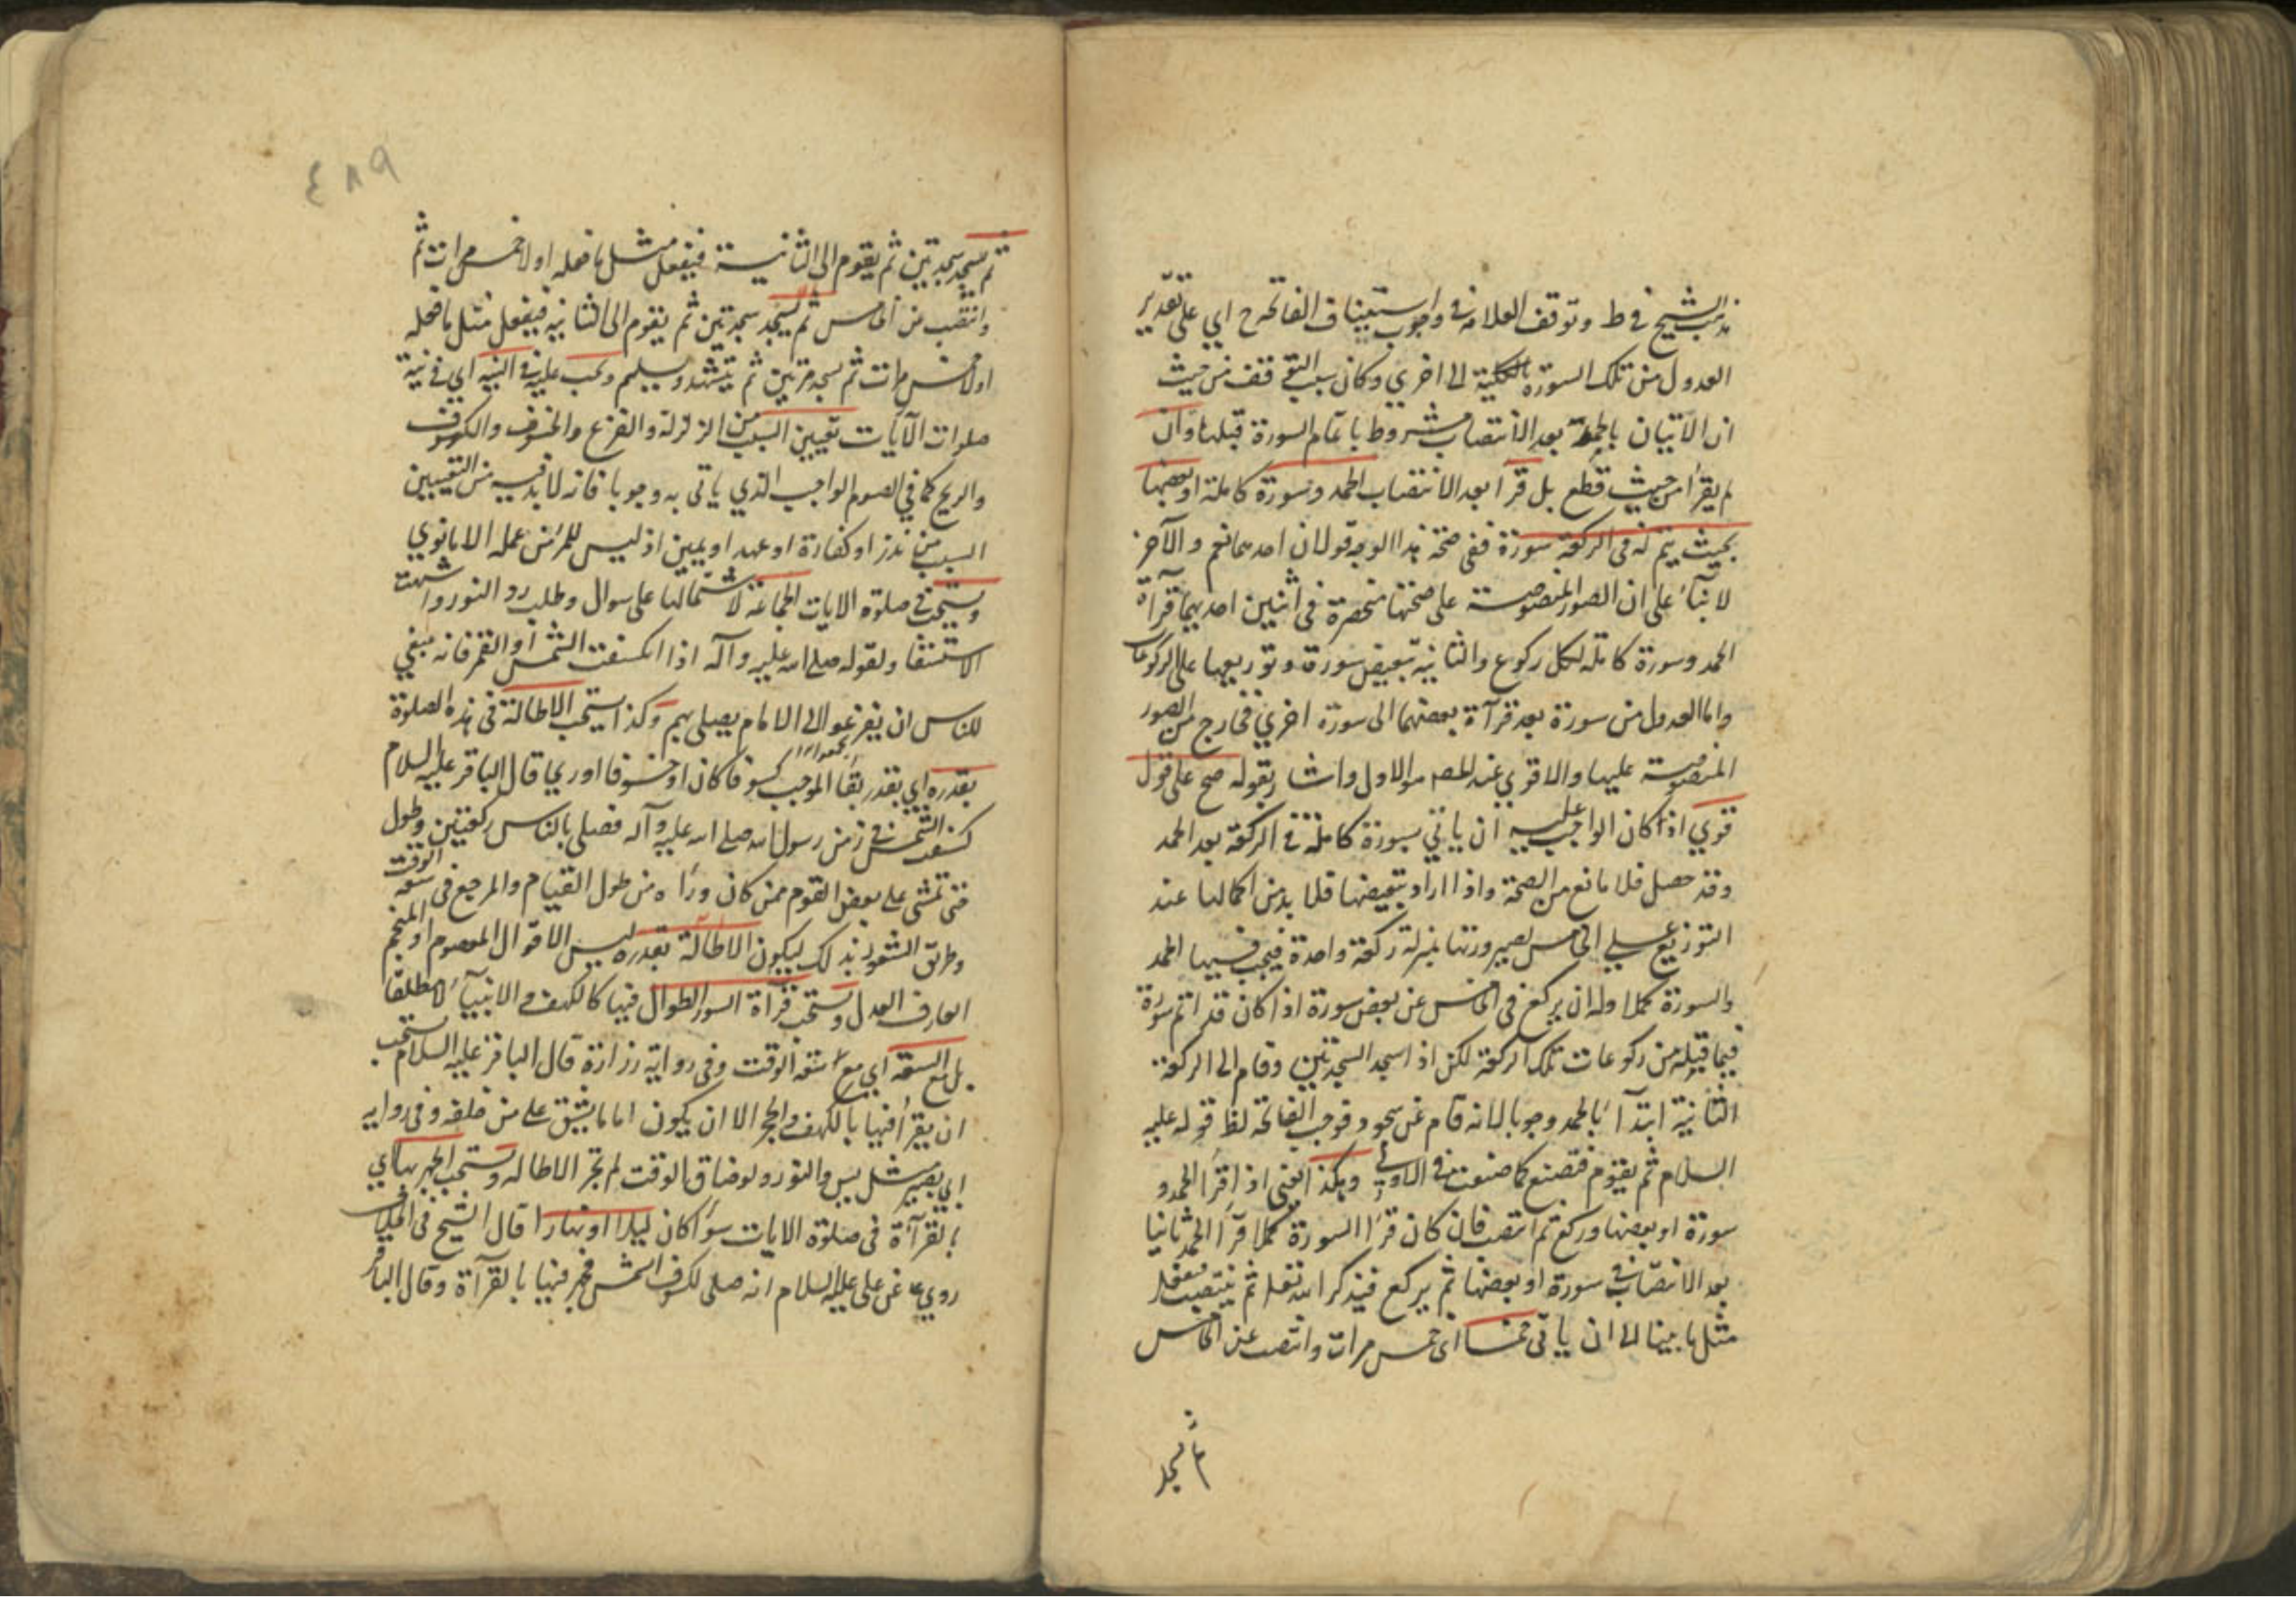 مذهب الشيخ في ط وتوقف العلامة في وجوب استيناف الفاتحة ح اي على تقدير
العدول من تلك السورة بالكلية الى اخري وكان سبب التوقف من حيث
ان الاتيان بالحمد بعد الانتصاب مشروط باتمام السورة قبلها وان
لم يقرأ من حيث قطع بل قرأ بعد الانتصاب الحمد وسورة كاملة او بعضها
بحيث يتم له في الركعة سورة ففي صحة هذا الوجه قولان احدهما نعم والآخر
لا بنآء على ان الصور المنصوصة على صحتها منحصرة في اثنين احديهما قرآة
الحمد وسورة كاملة لكل ركوع والثانية تبعيض سورة وتوزيعها على الركوعات
واما العدول من سورة بعد قرآة بعضها الى سورة اخري فخارج من الصور
المنصوصة عليها والاقوي عند المصـ هو الاول واشار بقوله صح على قول
قوي اذا كان الواجب عليه ان ياتي بسورة كاملة في الركعة بعد الحمد
وقد حصل فلا مانع من الصحة واذا اراد تبعيضها فلا بد من اكمالها عند
التوزيع على الخامس لصيرورتها بمنزلة ركعة واحدة فيجب فيها الحمد
والسورة كملا وله ان يركع في الخامس عن بعض سورة اذا كان قد اتم سورة
فيما قبله من ركوعات تلك الركعة لكن اذا سجد السجدتين وقام الى الركعة
الثانية ابتدآء بالحمد وجوبا لانه قام عن سجود فوجب الفاتحة لظ قوله عليه
السلام ثم يقوم فتصنع كما صنعت في الاولى وهكذا يعني اذا قرأ الحمد و
سورة او بعضها وركع ثم انتصب فان كان قرأ السورة كملا قرآ الحمد ثانيا
بعد الانتصاب في سورة او بعضها ثم يركع فيذكر الله تعا ثم ينتصب فيفعل
مثل ما بينا الى ان ياتي خمسا اى خمس مرات وانتصب عن الخامس
ثم يسجد
٤٨٩
ثم يسجد سجدتين ثم يقوم الى الثانية فيفعل مثل ما فعله اولا خمس مرات ثم
وانتصب من الخامس ثم يسجد سجدتين ثم يقوم الى الثانية فيفعل مثل ما فعله
اولا خمس مرات ثم يسجد مرتين ثم يتشهد ويسلم ويجب عليه في النية اي في نية
صلوات الآيات تعيين السبب من الزلزلة والفزع والخسوف والكسوف
والريح كما في الصوم الواجب الذي ياتى به وجوبا فانه لا بد فيه من التعيين
السبب من نذر او كفارة او عهد او يمين اذ ليس للمرء من عمله الا ما نوي
ويستحب في صلوة الايات الجماعة لاشتمالها على سوال وطلب رد النور واشبهت
الاستسقا ولقوله صلى الله عليه وآله اذا انكسفت الشمس او القمر فانه ينبغي
للناس ان يفزعوا الى الامام يصلى بهم وكذا يستحب الاطالة في هذه الصلوة
بقدره اي بقدر بقآ الموجب كسوفا كان او خسوفا او ريحا قال الباقر عليه السلام
كسفت الشمس في زمن رسول الله صلى الله عليه وآله فصلى بالناس ركعتين وطول
حتى غشى على بعض القوم ممن كان ورآه من طول القيام والمرجع في سعة الوقت
وطريق الشعور بذلك ليكون الاطالة بقدره ليس الا قول المعصوم او المنجم
العارف العدل ويستحب قرآة السور الطوال فيها كالكهف والانبيآء لا مطلقا
بل مع السعة اي مع سعة الوقت وفي رواية زرارة قال الباقر عليه السلام يستحب
ان يقرأ فيها بالكهف والحجر الا ان يكون اماما يشق على من خلفه وفي رواية
ابي بصير مثل يس والنور ولو ضاق الوقت لم تجز الاطالة ويستحب الجهر بها اي
بالقرآة في صلوة الايات سوآ كان ليلا او نهارا قال الشيخ في الخلاف
روي عن على عليه السلام انه صلى لكسوف الشمس فجهر فيها بالقرآة وقال الباقر